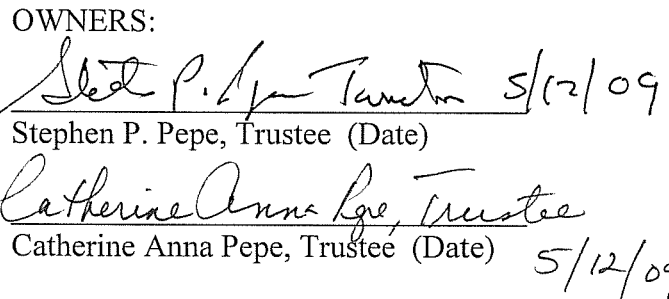 OWNERS:
Stephen P. Pepe Trustee 5/12/09
Stephen P. Pepe, Trustee (Date)
Catherine Anna Pepe, Trustee
Catherine Anna Pepe, Trustee (Date)
5/12/09